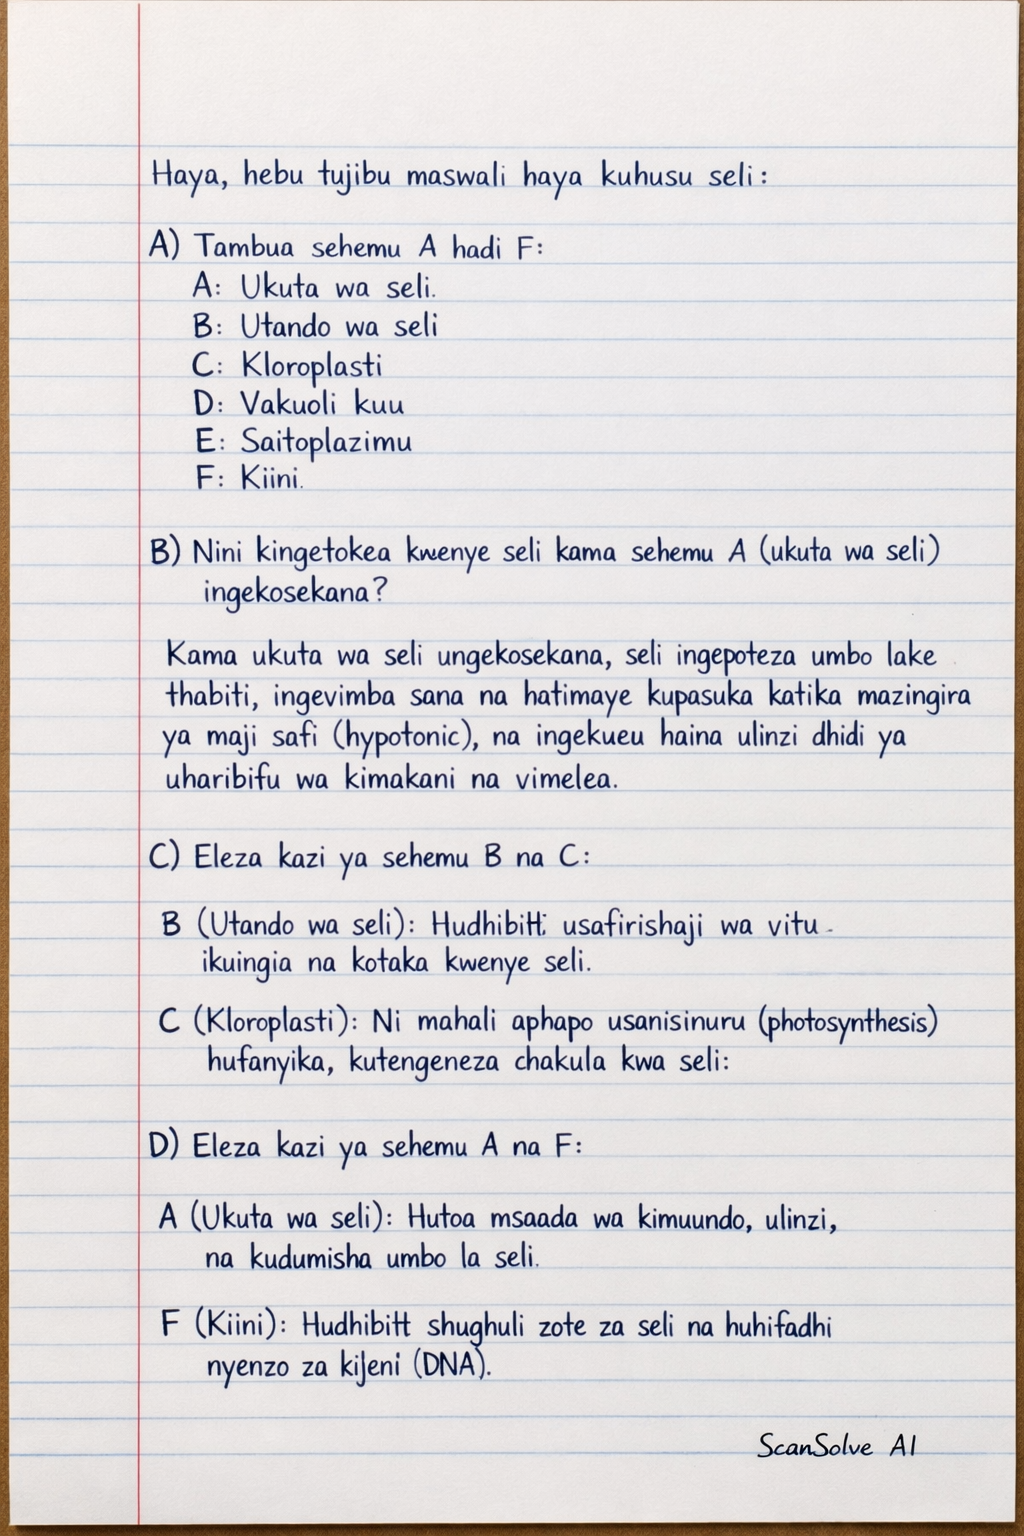 Haya, hebu tujibu maswali haya kuhusu seli:
A) Tambua sehemu A hadi F:
A: Ukuta wa seli.
B: Utando wa seli
C: Kloroplasti
D: Vakuoli kuu
E: Saitoplazimu
F: Kiini.
B) Nini kingetokea kwenye seli kama sehemu A (ukuta wa seli)
ingekosekana?
Kama ukuta wa seli ungekosekana, seli ingepoteza umbo lake
thabiti, ingevimba sana na hatimaye kupasuka katika mazingira
ya maji safi (hypotonic), na ingekueu haina ulinzi dhidi ya
uharibifu wa kimakani na vimelea.
C) Eleza kazi ya sehemu B na C:
B (Utando wa seli): Hudhibitt: usafirishaji wa vitu -
ikuingia na kotaka kwenye seli.
C (Kloroplasti): Ni mahali aphapo usanisinuru (photosynthesis)
hufanyika, kutengeneza chakula kwa seli:
D) Eleza kazi ya sehemu A na F:
A (Ukuta wa seli): Hutoa msaada wa kimuundo, ulinzi,
na kudumisha umbo la seli.
F (Kiini): Hudhibitt shughuli zote za seli na huhifadhi
nyenzo za kijeni (DNA).
ScanSolve AI